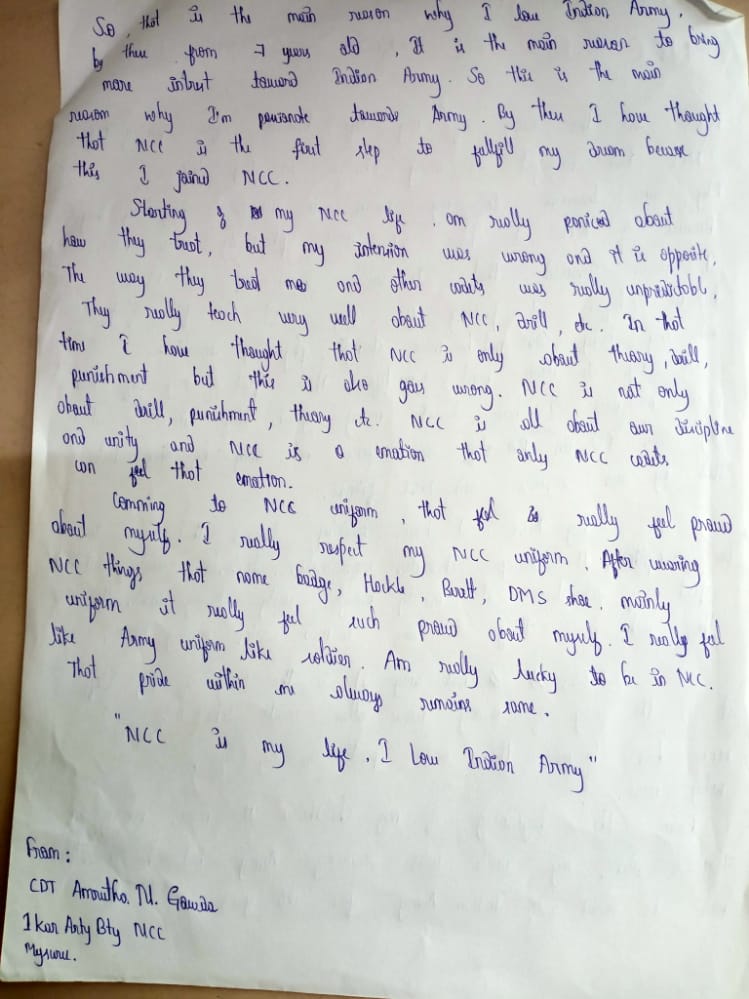 So, that is the main reason why I love Indian Army,
by there from 7 years old, It is the main reason to bring
more intrest toward Indian Army. So this is the main
reason why I'm passionate towards Army. By there I have thought
that NCC is the first step to fullfill my dream because
this I joined NCC.
Starting of my NCC life, am really paniced about
how they treat, but my intension was wrong and it is opposite,
The way they treat me and other cadets was really unpredictabl,
They really teach very well about NCC, drill, etc. In that
time I have thought that NCC is only about theary, drill,
punishment but this is also goes wrong. NCC is not only
about drill, punishment, theary etc. NCC is all about our discipline
and unity and NCC is a emotion that only NCC cadets
can feel that emotion.
Comming to NCC uniform, that feel is really feel proud
about myself. I really respect my NCC uniform. After wearing
NCC things that name badge, Hackle, Berett, DMS shoe, mainly
uniform it really feel such proud about myself. I really feel
like Army uniform like soldier. Am really lucky to be in NCC.
That pride within me always remains same.
"NCC is my life, I Love Indian Army"
From:
CDT Amrutha. M. Gowda
1 Kar Arty Bty NCC
Mysuru.